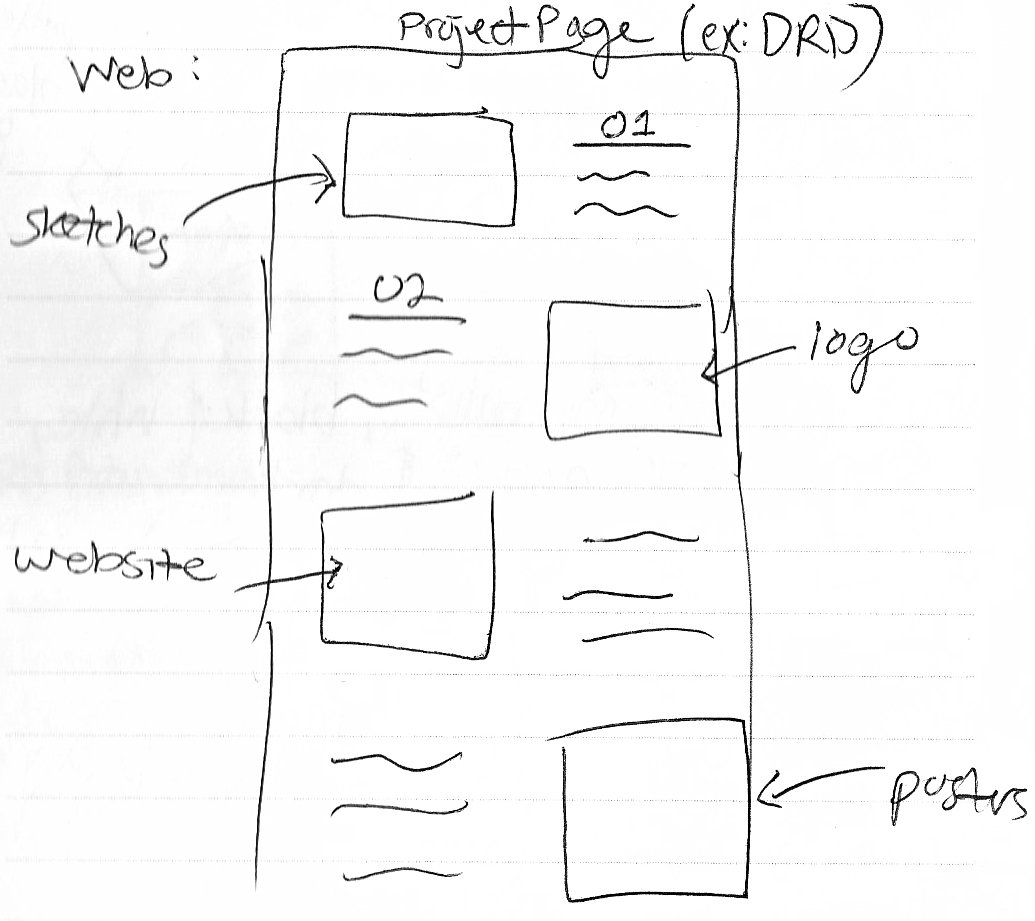 Project Page (ex: DRD)
Web:
01
sketches
02
logo
website
posters